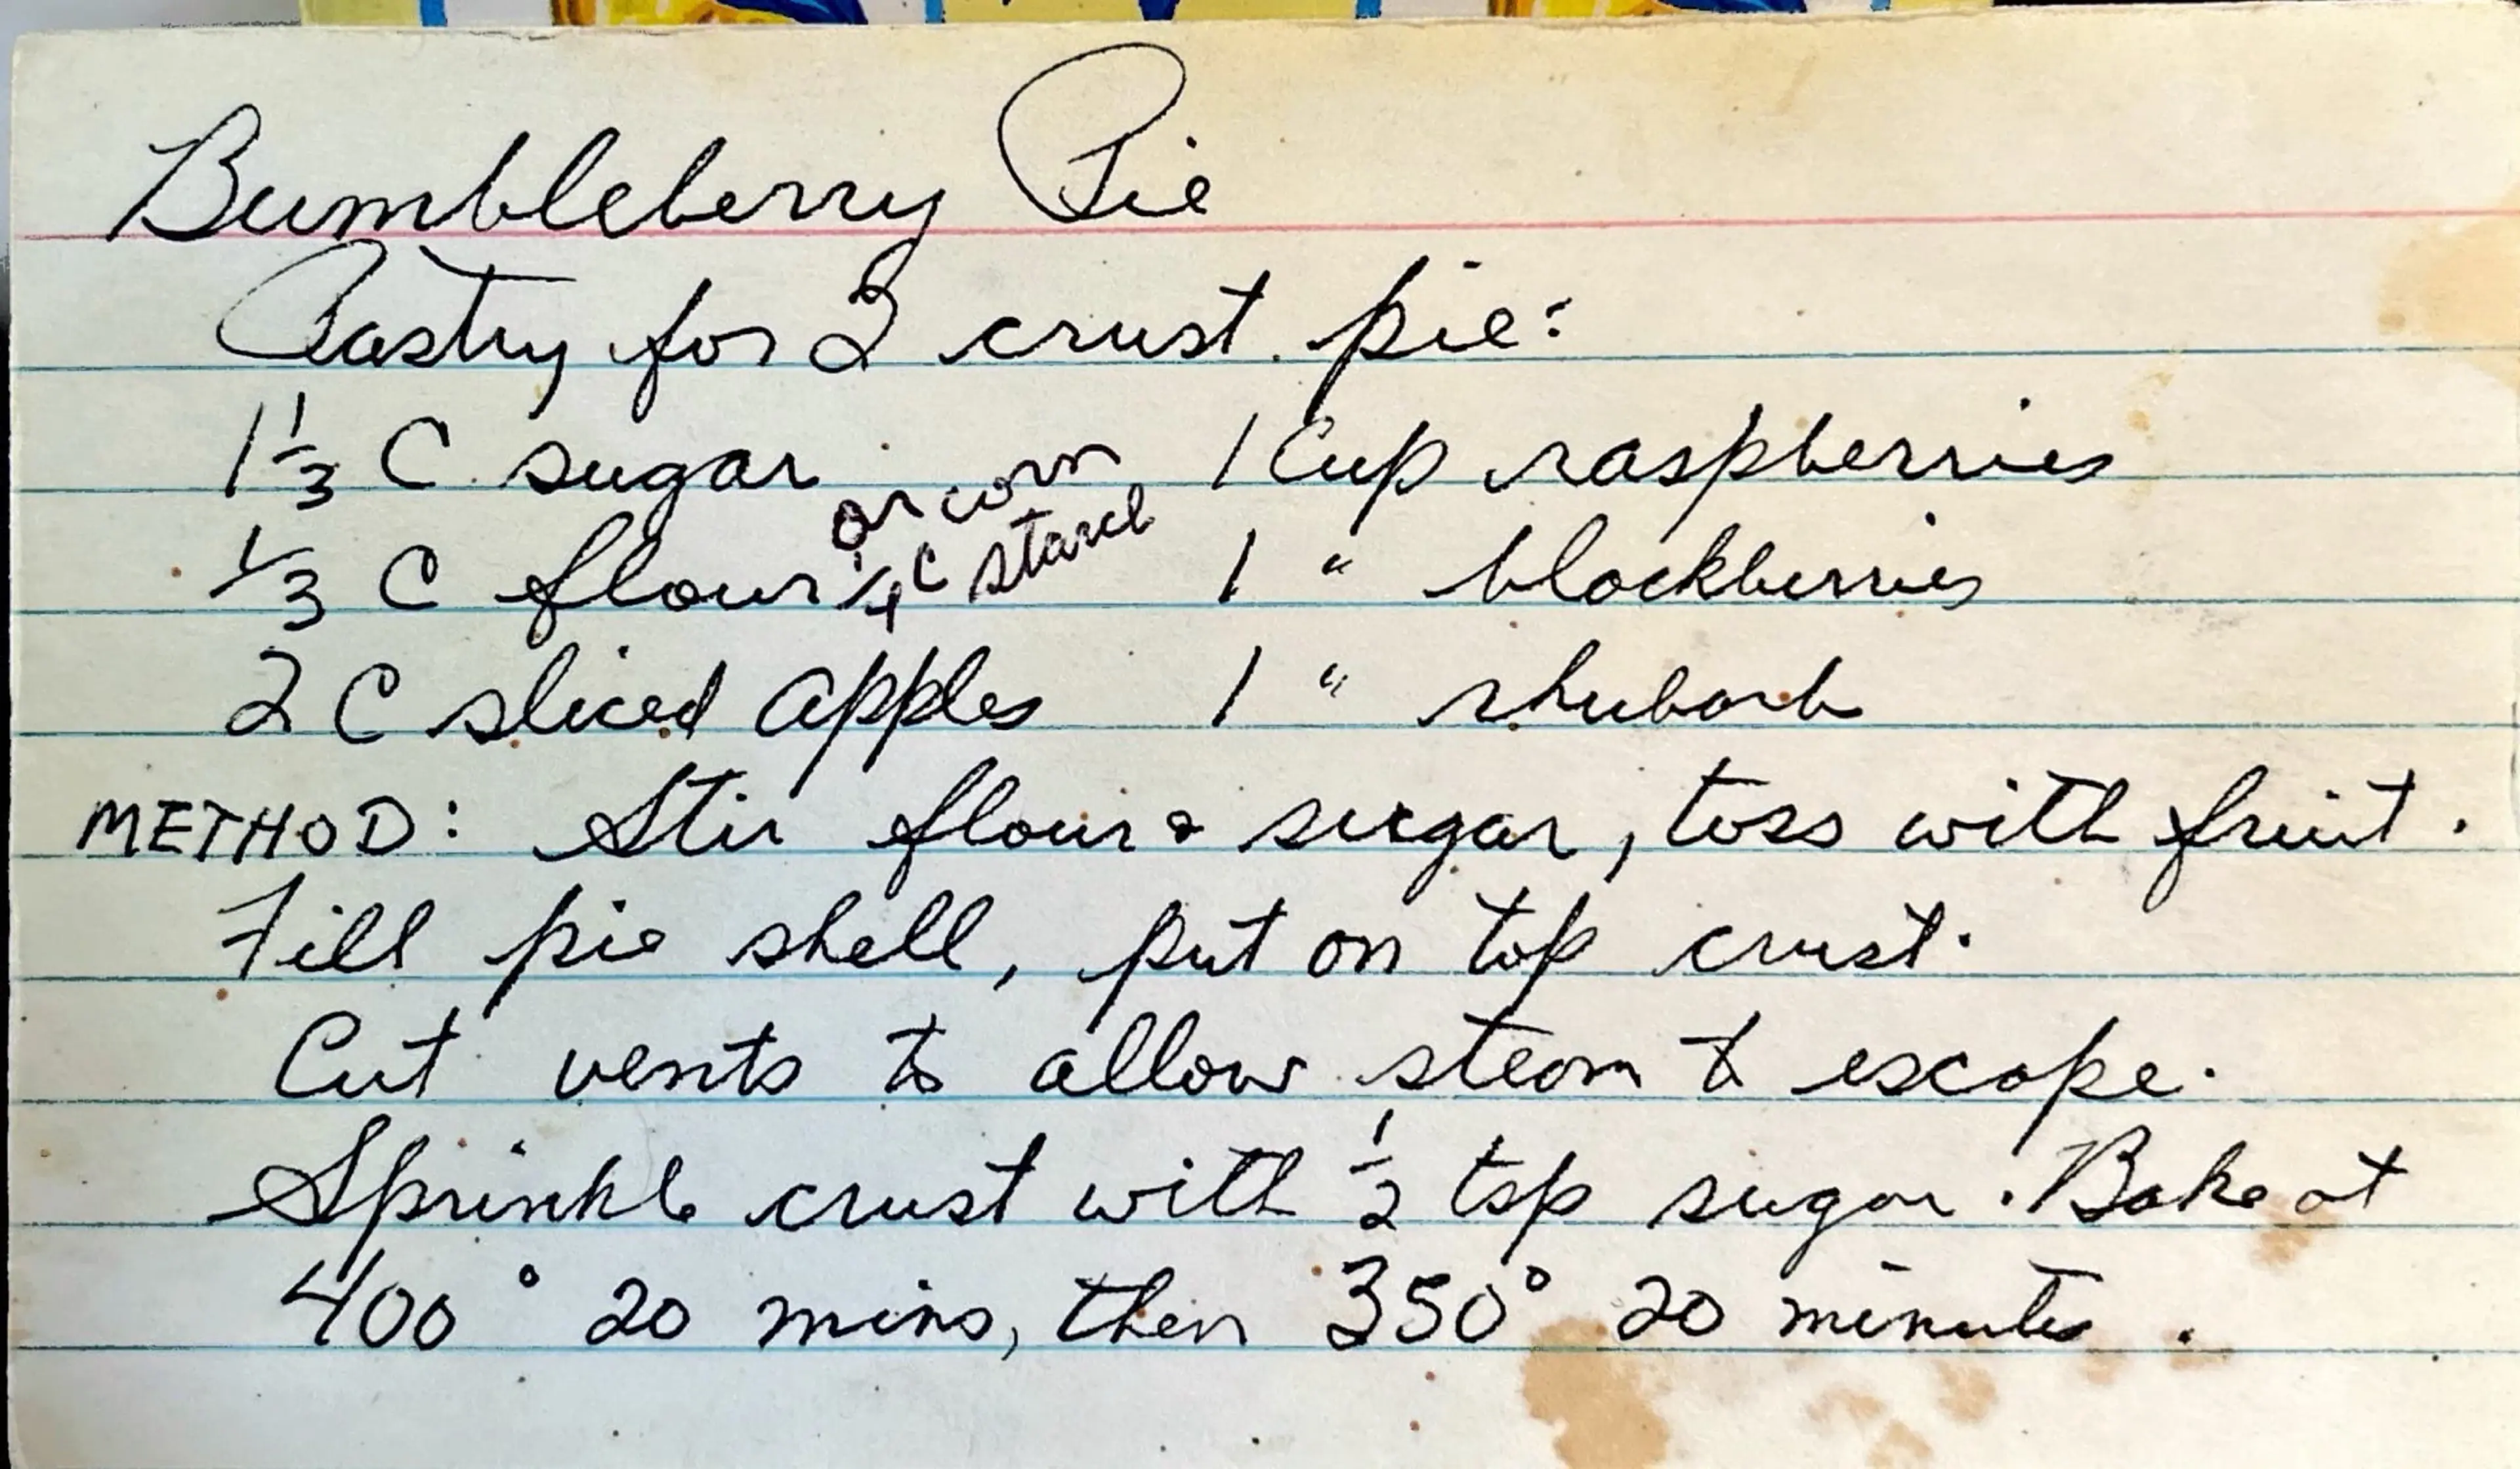 Bumbleberry Pie
Pastry for 2 crust pie:
1 1/3 C sugar 1 Cup raspberries
1/3 C flour or corn starch 1/4 C 1 " blackberries
2 C sliced apples 1 " rhubarb
METHOD: Stir flour & sugar, toss with fruit.
Fill pie shell, put on top crust.
Cut vents to allow steam to escape.
Sprinkle crust with 1/2 tsp sugar. Bake at
400° 20 mins, then 350° 20 minutes.